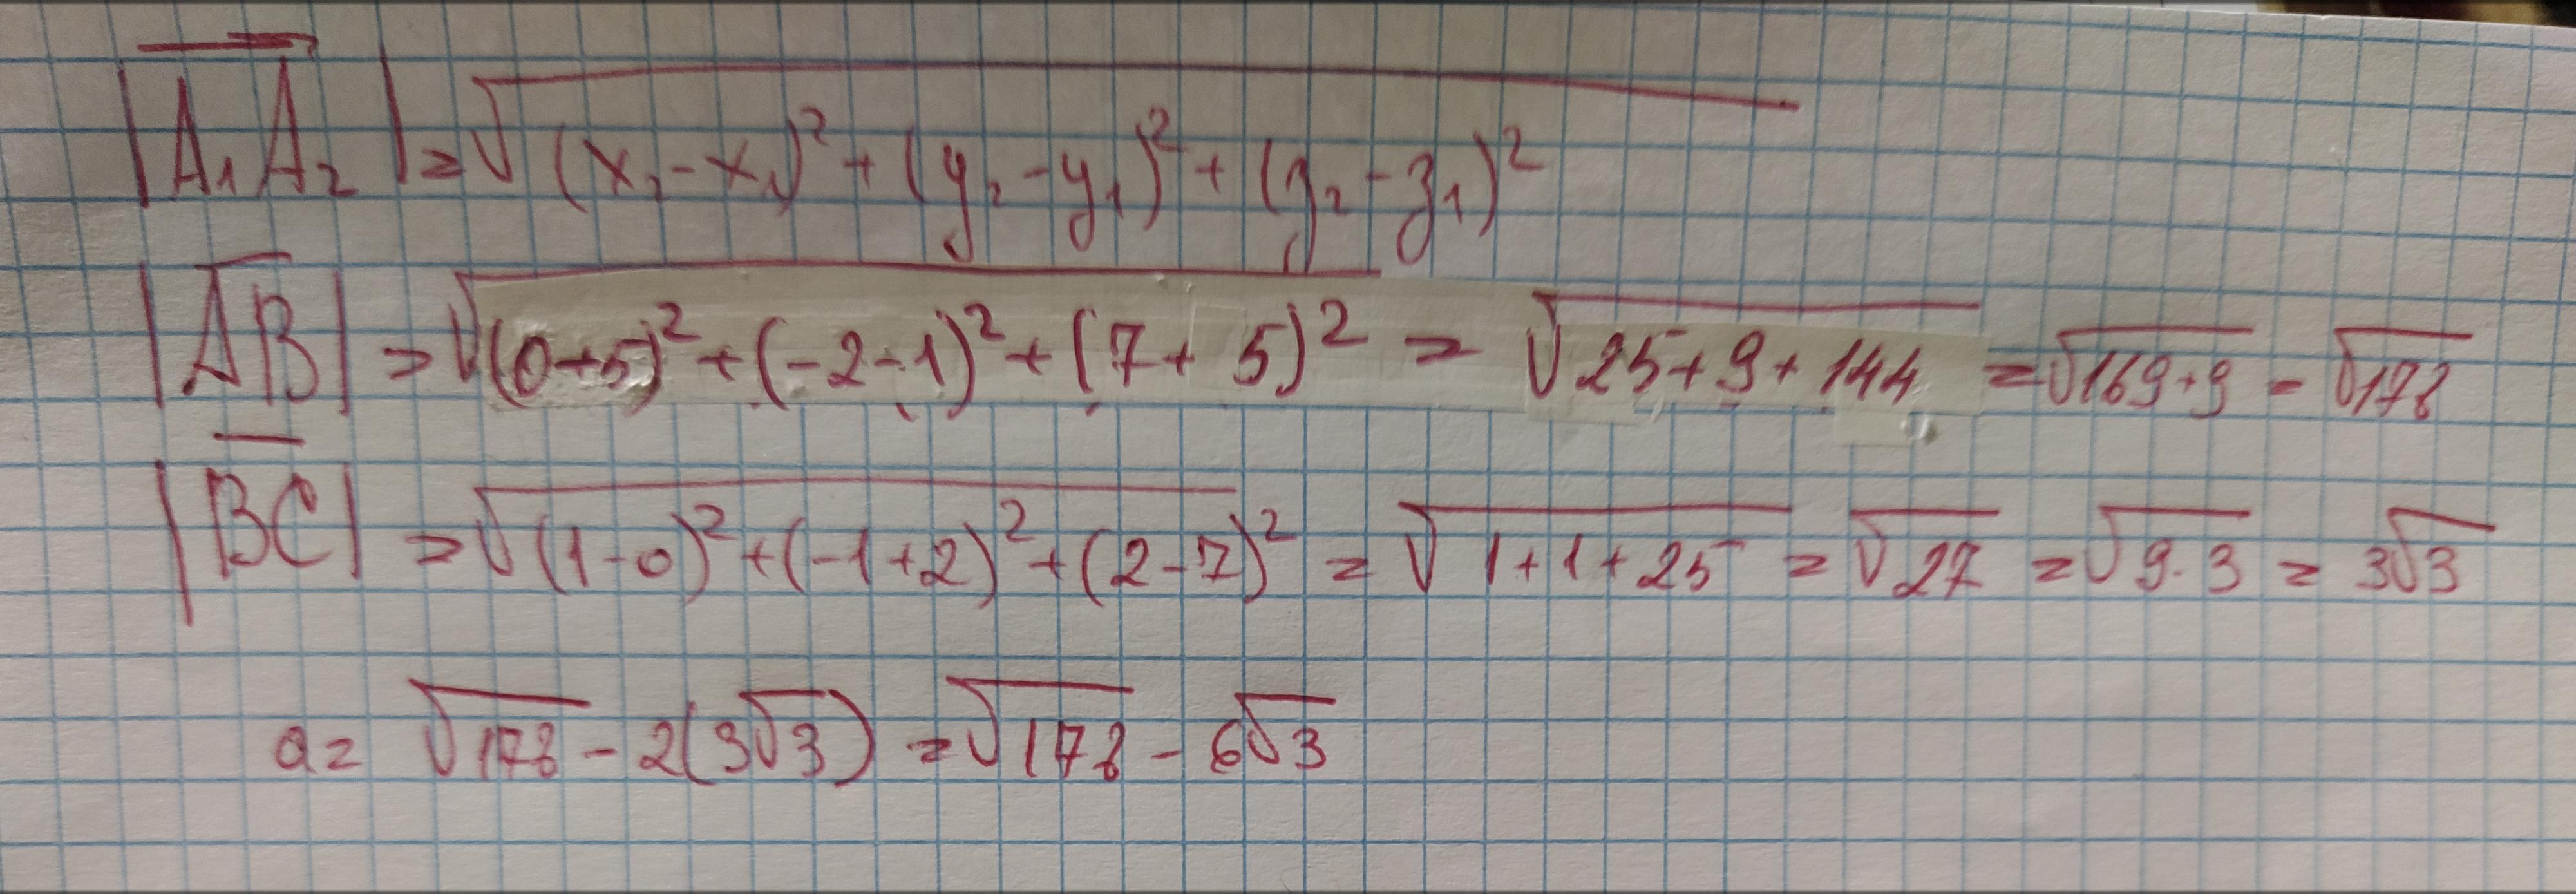 |A₁A₂| = √(x₂ - x₁)² + (y₂ - y₁)² + (z₂ - z₁)²
|AB| = √(0+5)² + (-2-1)² + (7+5)² = √25+9+144 = √169+9 = √178
|BC| = √(1-0)² + (-1+2)² + (2-7)² = √1+1+25 = √27 = √9·3 = 3√3
a = √178 - 2(3√3) = √178 - 6√3